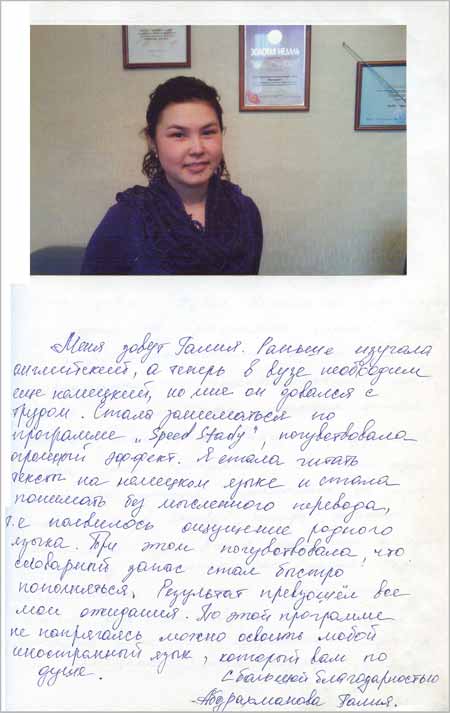 ЗОЛОТАЯ МЕДАЛЬ
Меня зовут Галия. Раньше изучала
английский, а теперь в вузе необходим
еще немецкий, но мне он давался с
трудом. Стала заниматься по
программе „Speed Stady", почувствовала
огромный эффект. Я стала читать
тексты на немецком языке и стала
понимать без мысленного перевода,
т.е появилось ощущение родного
языка. При этом почувствовала, что
словарный запас стал быстро
пополняться. Результат превзошёл все
мои ожидания. По этой программе
не напрягаясь можно освоить любой
иностранный язык, который вам по
душе.
С большой благодарностью
Абдрахманова Галия.